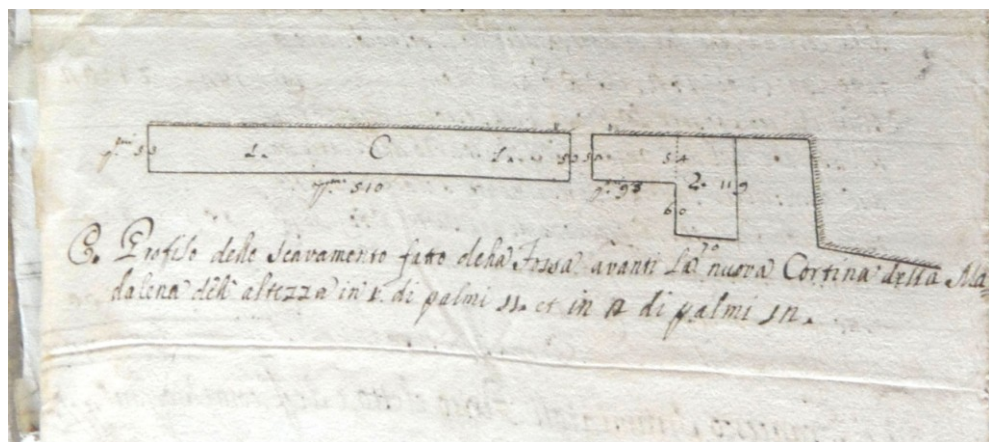 53 1. C 1. 50 50 54
2. 119
pmi 510 pmi 95
60
C. Profilo dello scavamento fatto della Fossa avanti la nuova Cortina della Ma=
dalena dell'altezza in 1. di palmi 11. et in 2 di palmi 12.